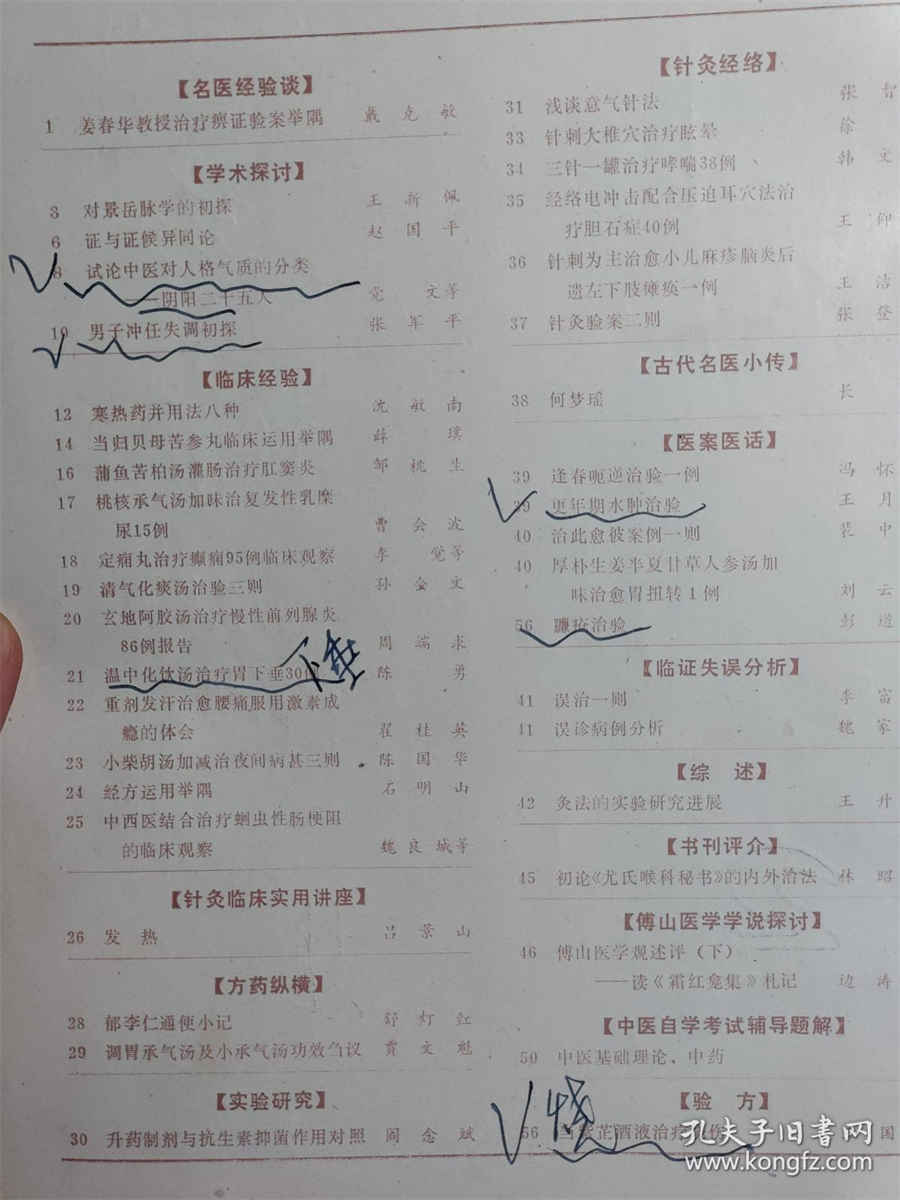 【名医经验谈】
1 姜春华教授治疗痹证验案举隅 戴克敏
【学术探讨】
3 对景岳脉学的初探 王新佩
6 证与证候异同论 赵国平
8 试论中医对人格气质的分类
——阴阳二十五人 党文等
10 男子冲任失调初探 张军平
【临床经验】
12 寒热药并用法八种 沈敏南
14 当归贝母苦参丸临床运用举隅 薛璞
16 蒲鱼苦柏汤灌肠治疗肛窦炎 邹桃生
17 桃核承气汤加味治复发性乳糜
尿15例 曹会波
18 定痫丸治疗癫痫95例临床观察 李觉等
19 清气化痰汤治验三则 孙金文
20 玄地阿胶汤治疗慢性前列腺炎
86例报告 周端求
21 温中化饮汤治疗胃下垂30 陈勇
下垂
22 重剂发汗治愈腰痛服用激素成
瘾的体会 翟桂英
23 小柴胡汤加减治夜间病甚三则 陈国华
24 经方运用举隅 石明山
25 中西医结合治疗蛔虫性肠梗阻
的临床观察 魏良城等
【针灸临床实用讲座】
26 发热 吕景山
【方药纵横】
28 郁李仁通便小记 舒灯红
29 调胃承气汤及小承气汤功效刍议 贾文魁
【实验研究】
30 升药制剂与抗生素抑菌作用对照 阎念斌
【针灸经络】
31 浅谈意气针法 张智
33 针刺大椎穴治疗眩晕 徐
34 三针一罐治疗哮喘38例 韩文
35 经络电冲击配合压迫耳穴法治
疗胆石症40例 王仰
36 针刺为主治愈小儿麻疹脑炎后
遗左下肢瘫痪一例 王洁
37 针灸验案二则 张登
【古代名医小传】
38 何梦瑶 长
【医案医话】
39 逢春呃逆治验一例 冯怀
39 更年期水肿治验 王月
40 治此愈彼案例一则 裴中
40 厚朴生姜半夏甘草人参汤加
味治愈胃扭转1例 刘云
56 臁疮治验 彭道
【临证失误分析】
41 误治一则 李富
41 误诊病例分析 魏家
【综述】
42 灸法的实验研究进展 王升
【书刊评介】
45 初论《尤氏喉科秘书》的内外治法 林昭
【傅山医学学说探讨】
46 傅山医学观述评（下）
——读《霜红龛集》札记 边涛
【中医自学考试辅导题解】
50 中医基础理论、中药
【验方】
56 芷酒液治疗 国
孔夫子旧书网
www.kongfz.com